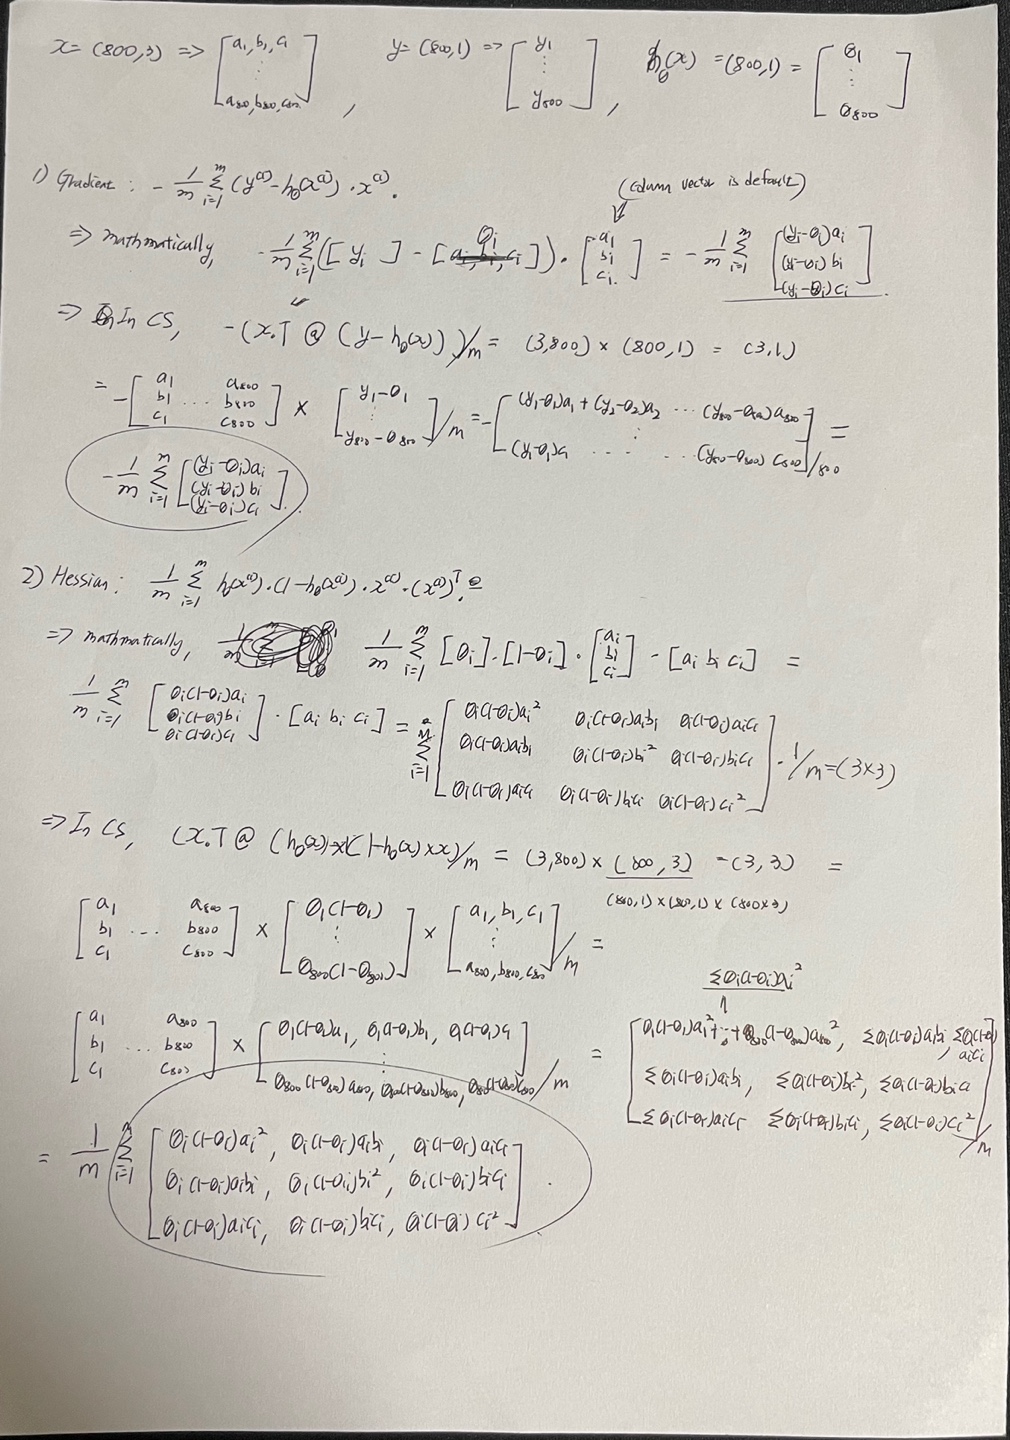 x = (800,3) => [a₁, b₁, c₁ ⋮ a₈₀₀, b₈₀₀, c₈₀₀], y = (800,1) => [y₁ ⋮ y₈₀₀], h_θ(x) = (800,1) = [θ₁ ⋮ θ₈₀₀]
1) Gradient : - 1/m Σ_{i=1}^{m} (y⁽ⁱ⁾ - h_θ(x⁽ⁱ⁾)) · x⁽ⁱ⁾.
(column vector is default)
=> mathmatically, - 1/m Σ_{i=1}^{m} ([y_i] - [θ_i]) · [a_i b_i c_i] = - 1/m Σ_{i=1}^{m} [(y_i-θ_i)a_i (y_i-θ_i)b_i (y_i-θ_i)c_i]
=> In CS, -(x.T @ (y - h_θ(x)))/m = (3,800) × (800,1) = (3,1)
= -[a₁ b₁ c₁ ... a₈₀₀ b₈₀₀ c₈₀₀] × [y₁-θ₁ ⋮ y₈₀₀-θ₈₀₀]/m = -[(y₁-θ₁)a₁ + (y₂-θ₂)a₂ ... (y₈₀₀-θ₈₀₀)a₈₀₀ ⋮ (y₁-θ₁)c₁ ... (y₈₀₀-θ₈₀₀)c₈₀₀]/800 =
- 1/m Σ_{i=1}^{m} [(y_i-θ_i)a_i (y_i-θ_i)b_i (y_i-θ_i)c_i].
2) Hessian : 1/m Σ_{i=1}^{m} h_θ(x⁽ⁱ⁾) · (1-h_θ(x⁽ⁱ⁾)) · x⁽ⁱ⁾ · (x⁽ⁱ⁾)ᵀ. =
=> mathmatically, 1/m Σ_{i=1}^{m} [θ_i] · [1-θ_i] · [a_i b_i c_i] · [a_i b_i c_i] =
1/m Σ_{i=1}^{m} [θ_i(1-θ_i)a_i θ_i(1-θ_i)b_i θ_i(1-θ_i)c_i] · [a_i b_i c_i] = Σ_{i=1}^{m} [θ_i(1-θ_i)a_i² θ_i(1-θ_i)a_ib_i θ_i(1-θ_i)a_ic_i
θ_i(1-θ_i)a_ib_i θ_i(1-θ_i)b_i² θ_i(1-θ_i)b_ic_i
θ_i(1-θ_i)a_ic_i θ_i(1-θ_i)b_ic_i θ_i(1-θ_i)c_i²] · 1/m = (3×3)
=> In CS, (x.T @ (h_θ(x) × (1-h_θ(x) × x)/m = (3,800) × (800,3) = (3,3) =
(800,1) × (800,1) × (800×3)
[a₁ b₁ c₁ ... a₈₀₀ b₈₀₀ c₈₀₀] × [θ₁(1-θ₁) ⋮ θ₈₀₀(1-θ₈₀₀)] × [a₁, b₁, c₁ ⋮ a₈₀₀, b₈₀₀, c₈₀₀]/m =
Σθ_i(1-θ_i)a_i²
[a₁ b₁ c₁ ... a₈₀₀ b₈₀₀ c₈₀₀] × [θ₁(1-θ₁)a₁, θ₁(1-θ₁)b₁, θ₁(1-θ₁)c₁ ⋮ θ₈₀₀(1-θ₈₀₀)a₈₀₀, θ₈₀₀(1-θ₈₀₀)b₈₀₀, θ₈₀₀(1-θ₈₀₀)c₈₀₀]/m = [θ₁(1-θ₁)a₁²+...+θ₈₀₀(1-θ₈₀₀)a₈₀₀², Σθ_i(1-θ_i)a_ib_i, Σθ_i(1-θ_i)a_ic_i
Σθ_i(1-θ_i)a_ib_i, Σθ_i(1-θ_i)b_i², Σθ_i(1-θ_i)b_ic_i
Σθ_i(1-θ_i)a_ic_i Σθ_i(1-θ_i)b_ic_i, Σθ_i(1-θ_i)c_i²]/m
= 1/m Σ_{i=1}^{m} [θ_i(1-θ_i)a_i², θ_i(1-θ_i)a_ib_i, θ_i(1-θ_i)a_ic_i
θ_i(1-θ_i)a_ib_i, θ_i(1-θ_i)b_i², θ_i(1-θ_i)b_ic_i
θ_i(1-θ_i)a_ic_i, θ_i(1-θ_i)b_ic_i, θ_i(1-θ_i)c_i²].